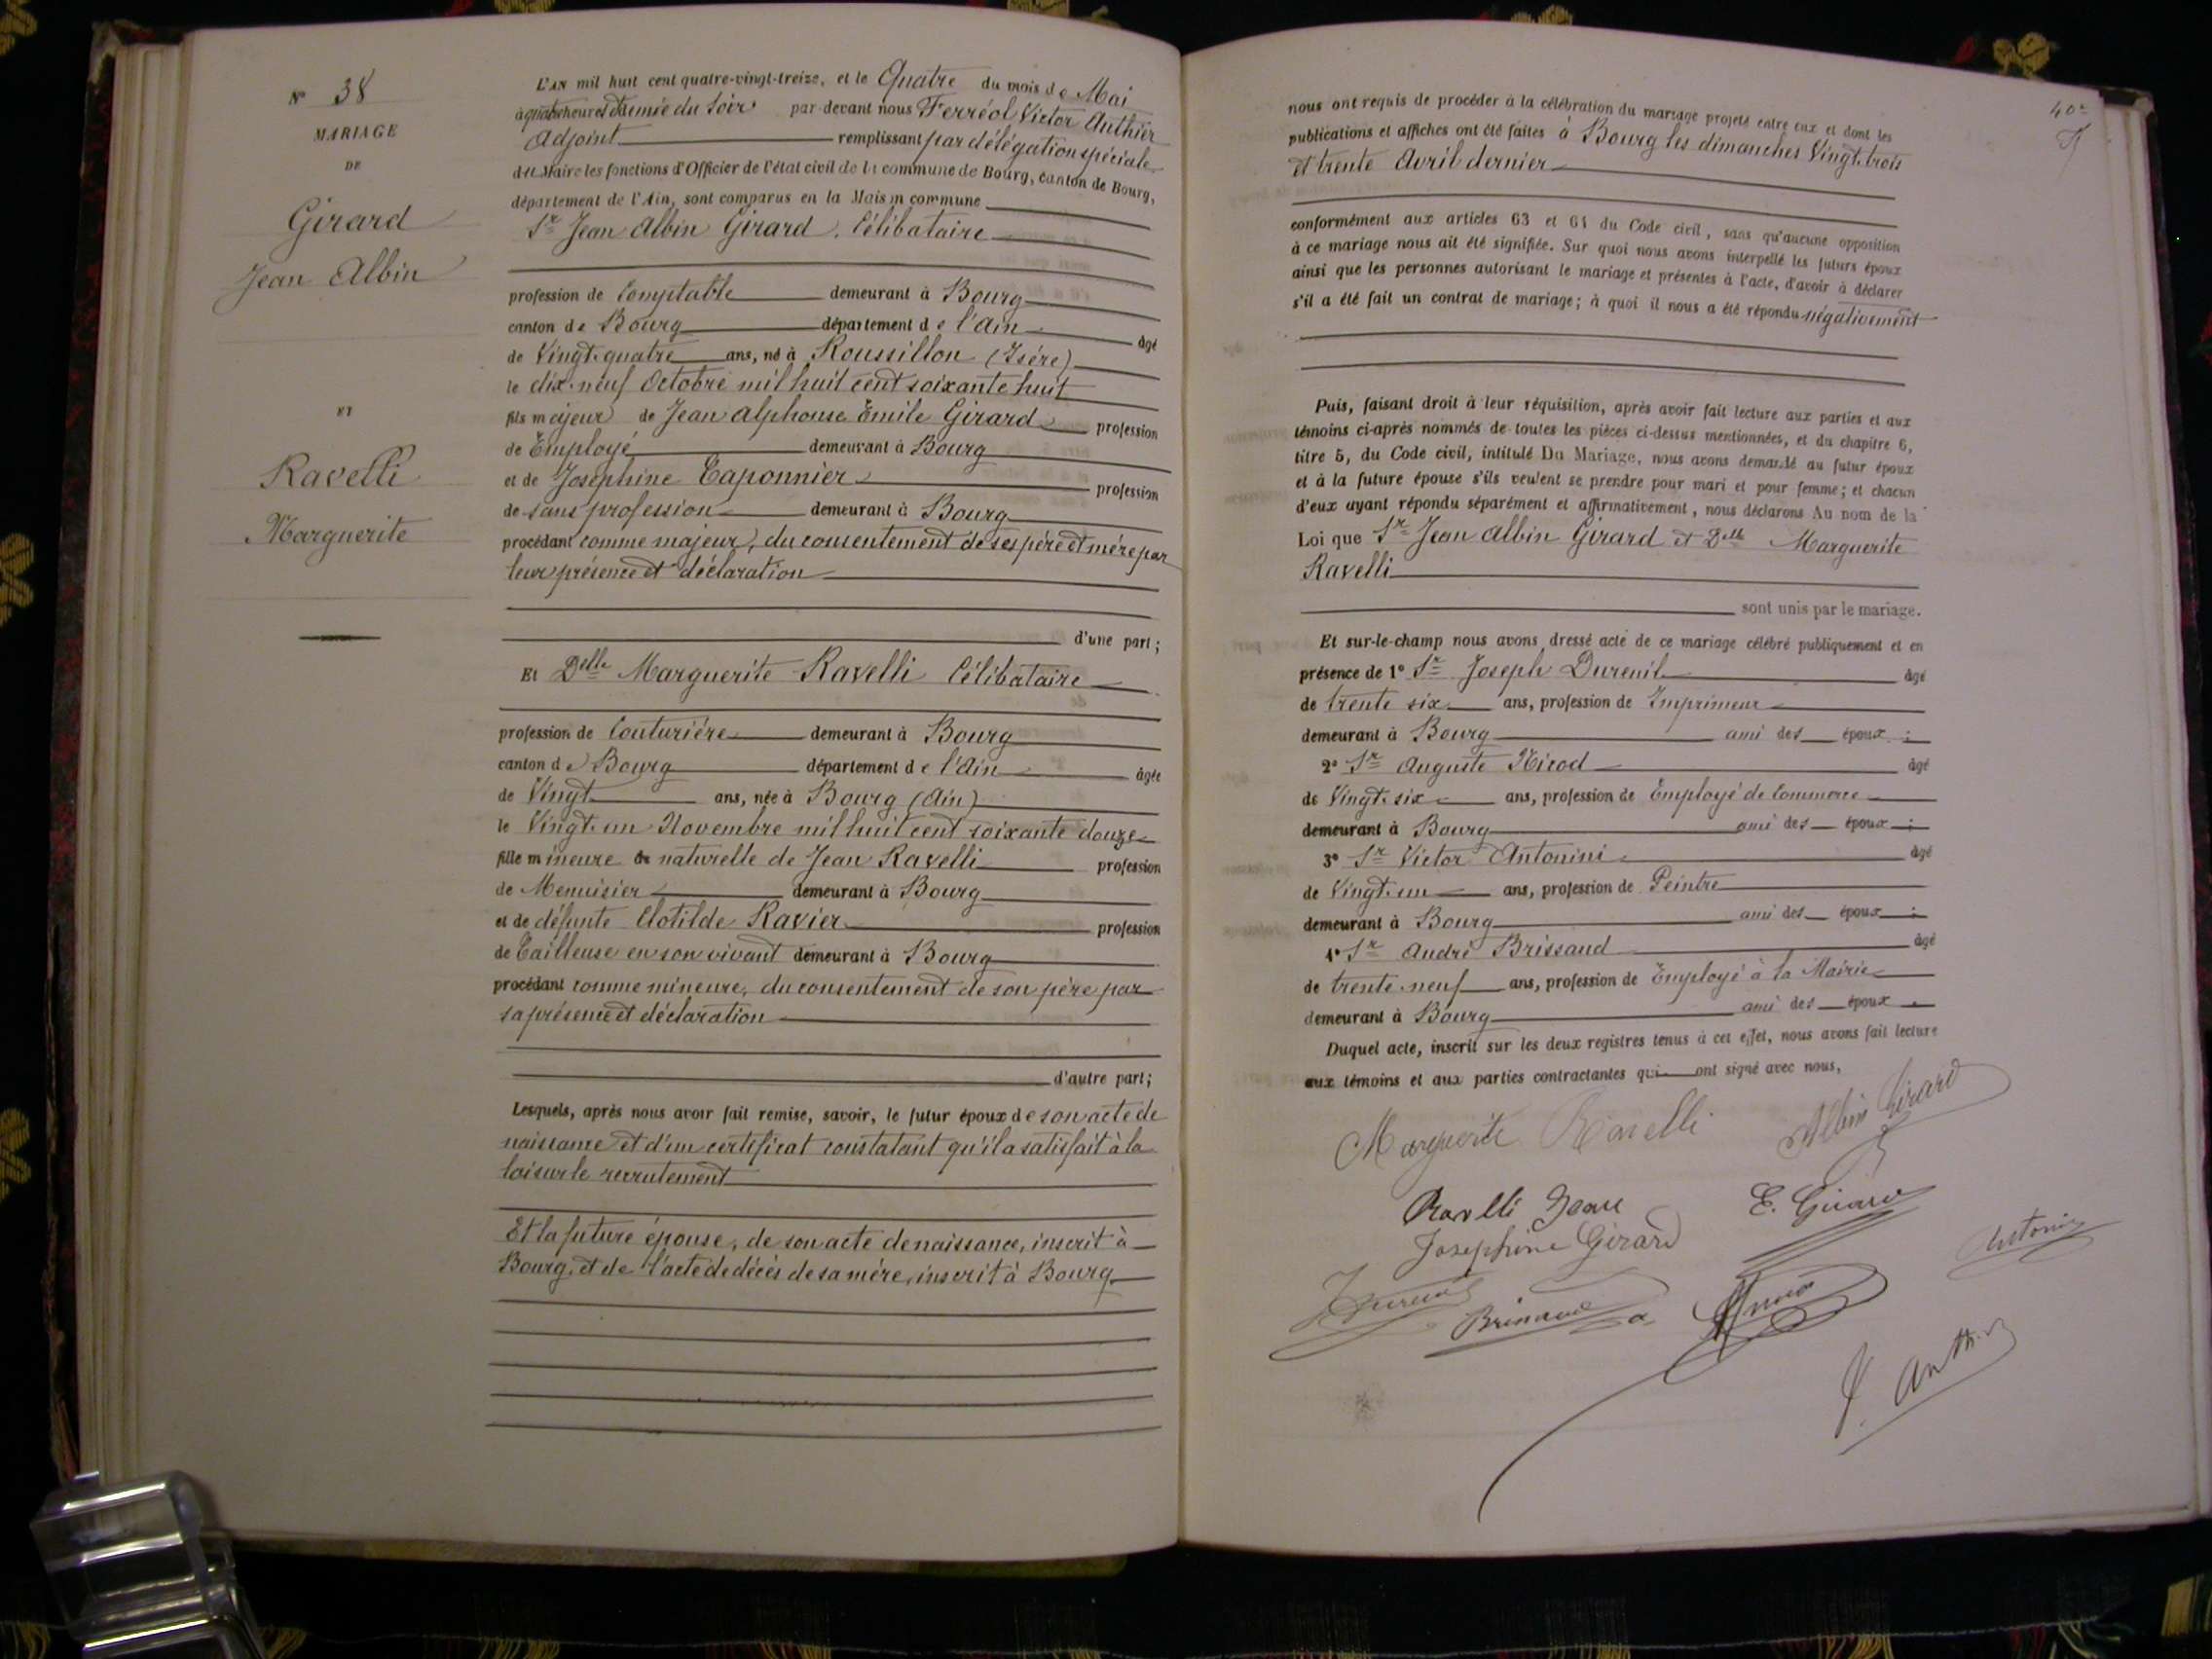 N° 38
MARIAGE
DE
Girard
Jean Albin
ET
Ravelli
Marguerite
L'AN mil huit cent quatre-vingt-treize, et le Quatre du mois de Mai
à quatre heures et demie du soir par-devant nous Ferréol Victor Authier
Adjoint remplissant par délégation spéciale
du Maire les fonctions d'Officier de l'état civil de la commune de Bourg, canton de Bourg,
département de l'Ain, sont comparus en la Maison commune
Sr Jean Albin Girard. Célibataire
profession de Comptable demeurant à Bourg
canton de Bourg département de l'Ain âgé
de Vingt-quatre ans, né à Roussillon (Isére)
le dix-neuf Octobre mil huit cent soixante huit
fils majeur de Jean Alphonse Emile Girard profession
de Employé demeurant à Bourg
et de Joséphine Taponnier profession
de sans profession demeurant à Bourg
procédant comme majeur, du consentement de ses pére et mére par
leur présence et déclaration
d'une part;
Et Delle Marguerite Ravelli Célibataire
profession de Couturiére demeurant à Bourg
canton de Bourg département de l'Ain âgée
de Vingt ans, née à Bourg (Ain)
le Vingt-un Novembre mil huit cent soixante douze
fille mineure de naturelle de Jean Ravelli profession
de Menuisier demeurant à Bourg
et de défunte Clotilde Ravier profession
de Tailleuse en son vivant demeurant à Bourg
procédant comme mineure, du consentement de son pére par
sa présence et déclaration
d'autre part;
Lesquels, après nous avoir fait remise, savoir, le futur époux de son acte de
naissance et d'un certificat constatant qu'il a satisfait à la
loi sur le recrutement
Et la future épouse, de son acte de naissance, inscrit à
Bourg, et de l'acte de décès de sa mére, inscrit à Bourg
40e
nous ont requis de procéder à la célébration du mariage projeté entre eux et dont les
publications et affiches ont été faites à Bourg les dimanches Vingt-trois
et trente Avril dernier
conformément aux articles 63 et 64 du Code civil, sans qu'aucune opposition
à ce mariage nous ait été signifiée. Sur quoi nous avons interpellé les futurs époux
ainsi que les personnes autorisant le mariage et présentes à l'acte, d'avoir à déclarer
s'il a été fait un contrat de mariage; à quoi il nous a été répondu négativement
Puis, faisant droit à leur réquisition, après avoir fait lecture aux parties et aux
témoins ci-après nommés de toutes les pièces ci-dessus mentionnées, et du chapitre 6,
titre 5, du Code civil, intitulé Du Mariage, nous avons demandé au futur époux
et à la future épouse s'ils veulent se prendre pour mari et pour femme; et chacun
d'eux ayant répondu séparément et affirmativement, nous déclarons Au nom de la
Loi que Sr Jean Albin Girard et Delle Marguerite
Ravelli
sont unis par le mariage.
Et sur-le-champ nous avons dressé acte de ce mariage célébré publiquement et en
présence de 1° Sr Joseph Dureuil âgé
de trente six ans, profession de Imprimeur
demeurant à Bourg ami des époux ;
2° Sr Auguste Nicod âgé
de Vingt-six ans, profession de Employé de Commerce
demeurant à Bourg ami des époux ;
3° Sr Victor Antonini âgé
de Vingt-un ans, profession de Peintre
demeurant à Bourg ami des époux ;
4° Sr André Brissaud âgé
de trente-neuf ans, profession de Employé à la Mairie
demeurant à Bourg ami des époux .
Duquel acte, inscrit sur les deux registres tenus à cet effet, nous avons fait lecture
aux témoins et aux parties contractantes qui ont signé avec nous,
Marguerite Ravelli Albin Girard
Ravelli Jean E. Girard
Josephine Girard Antonini